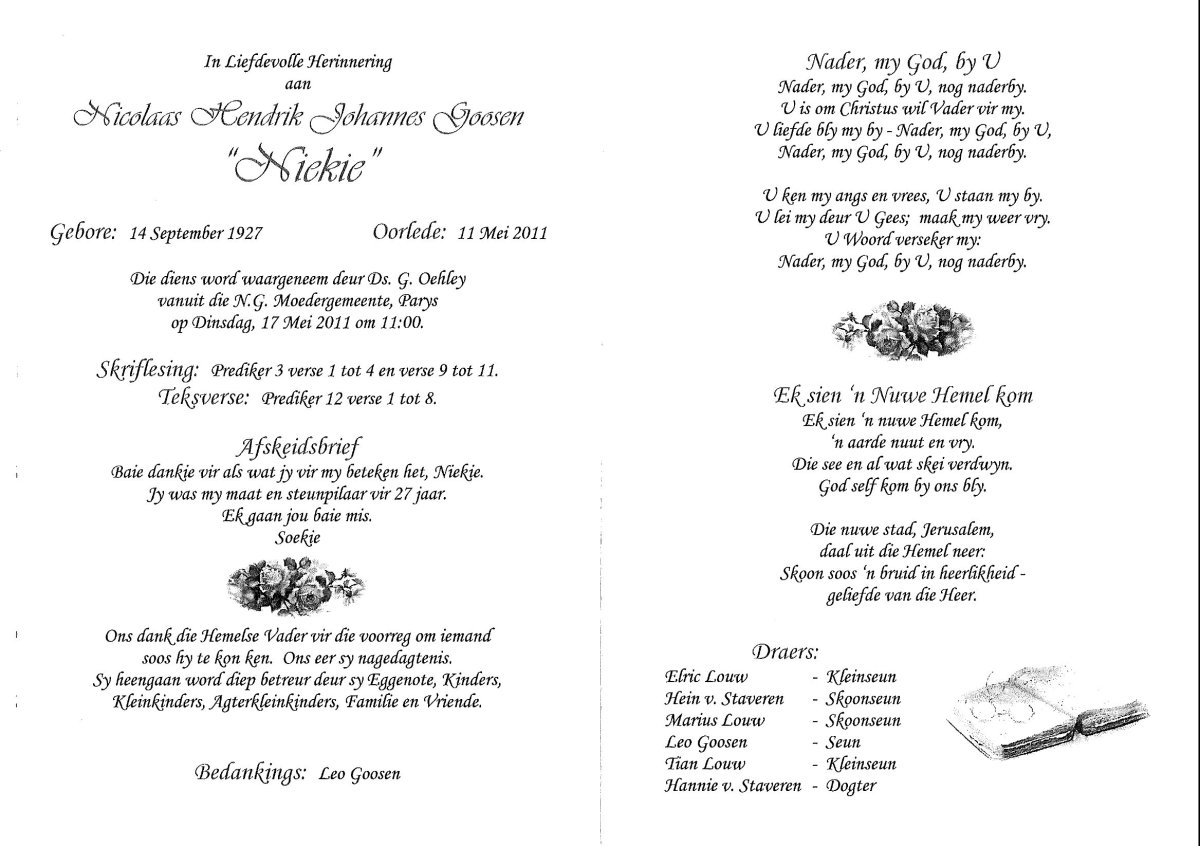 In Liefdevolle Herinnering
aan
Nicolaas Hendrik Johannes Goosen
"Niekie"
Gebore: 14 September 1927 Oorlede: 11 Mei 2011
Die diens word waargeneem deur Ds. G. Oehley
vanuit die N.G. Moedergemeente, Parys
op Dinsdag, 17 Mei 2011 om 11:00.
Skriflesing: Prediker 3 verse 1 tot 4 en verse 9 tot 11.
Teksverse: Prediker 12 verse 1 tot 8.
Afskeidsbrief
Baie dankie vir als wat jy vir my beteken het, Niekie.
Jy was my maat en steunpilaar vir 27 jaar.
Ek gaan jou baie mis.
Soekie
Ons dank die Hemelse Vader vir die voorreg om iemand
soos hy te kon ken. Ons eer sy nagedagtenis.
Sy heengaan word diep betreur deur sy Eggenote, Kinders,
Kleinkinders, Agterkleinkinders, Familie en Vriende.
Bedankings: Leo Goosen
Nader, my God, by U
Nader, my God, by U, nog naderby.
U is om Christus wil Vader vir my.
U liefde bly my by - Nader, my God, by U,
Nader, my God, by U, nog naderby.
U ken my angs en vrees, U staan my by.
U lei my deur U Gees; maak my weer vry.
U Woord verseker my:
Nader, my God, by U, nog naderby.
Ek sien 'n Nuwe Hemel kom
Ek sien 'n nuwe Hemel kom,
'n aarde nuut en vry.
Die see en al wat skei verdwyn.
God self kom by ons bly.
Die nuwe stad, Jerusalem,
daal uit die Hemel neer:
Skoon soos 'n bruid in heerlikheid -
geliefde van die Heer.
Draers:
Elric Louw - Kleinseun
Hein v. Staveren - Skoonseun
Marius Louw - Skoonseun
Leo Goosen - Seun
Tian Louw - Kleinseun
Hannie v. Staveren - Dogter